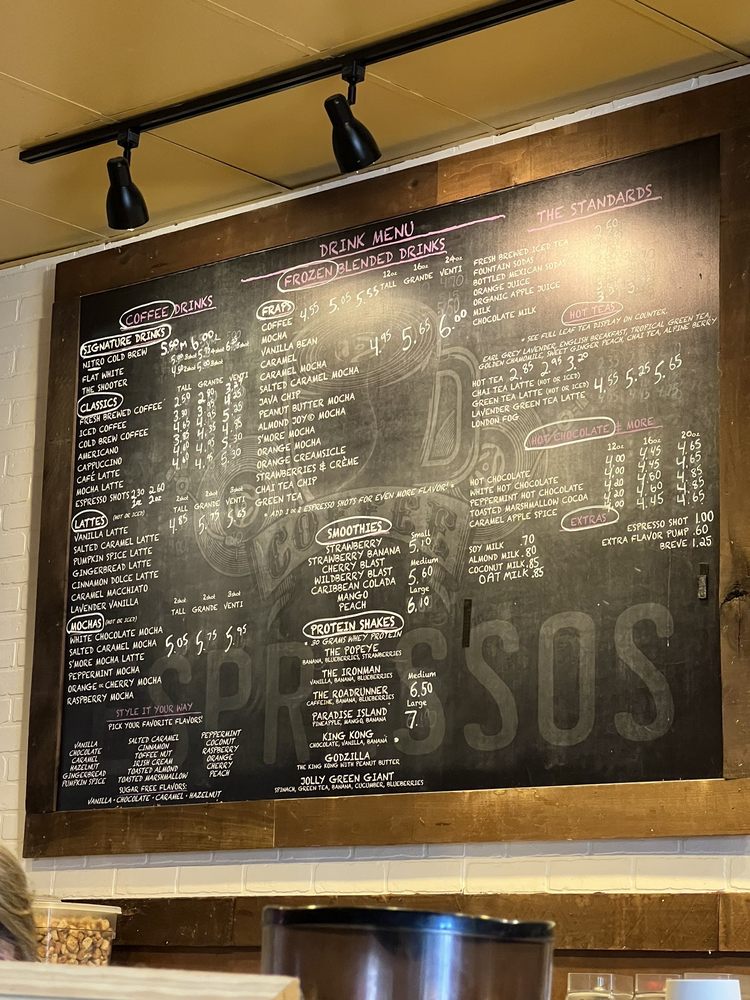 DRINK MENU
COFFEE DRINKS
SIGNATURE DRINKS
NITRO COLD BREW
FLAT WHITE
THE SHOOTER
TALL GRANDE VENTI
CLASSICS
FRESH BREWED COFFEE
ICED COFFEE
COLD BREW COFFEE
AMERICANO
CAPPUCCINO
CAFÉ LATTE
MOCHA LATTE
ESPRESSO SHOTS 2.30 2.60
LATTES (HOT OR ICED)
TALL GRANDE VENTI
4.85 5.75 5.65
VANILLA LATTE
SALTED CARAMEL LATTE
PUMPKIN SPICE LATTE
GINGERBREAD LATTE
CINNAMON DOLCE LATTE
CARAMEL MACCHIATO
LAVENDER VANILLA
TALL GRANDE VENTI
MOCHAS (HOT OR ICED)
WHITE CHOCOLATE MOCHA
SALTED CARAMEL MOCHA 5.05 5.75 5.95
S'MORE MOCHA LATTE
PEPPERMINT MOCHA
ORANGE OR CHERRY MOCHA
RASPBERRY MOCHA
STYLE IT YOUR WAY
PICK YOUR FAVORITE FLAVORS!
VANILLA
CHOCOLATE
CARAMEL
HAZELNUT
GINGERBREAD
PUMPKIN SPICE
SALTED CARAMEL
CINNAMON
TOFFEE NUT
IRISH CREAM
TOASTED ALMOND
TOASTED MARSHMALLOW
PEPPERMINT
COCONUT
RASPBERRY
ORANGE
CHERRY
PEACH
SUGAR FREE FLAVORS:
VANILLA · CHOCOLATE · CARAMEL · HAZELNUT
FROZEN BLENDED DRINKS
12oz 16oz 24oz
TALL GRANDE VENTI
FRAPS
COFFEE 4.55 5.05 5.55
MOCHA
VANILLA BEAN
CARAMEL 4.95 5.65 6.00
CARAMEL MOCHA
SALTED CARAMEL MOCHA
JAVA CHIP
PEANUT BUTTER MOCHA
ALMOND JOY® MOCHA
S'MORE MOCHA
ORANGE MOCHA
ORANGE CREAMSICLE
STRAWBERRIES & CRÈME
CHAI TEA CHIP
GREEN TEA
* ADD 1 OR 2 ESPRESSO SHOTS FOR EVEN MORE FLAVOR! *
SMOOTHIES
STRAWBERRY
STRAWBERRY BANANA
CHERRY BLAST
WILDBERRY BLAST
CARIBBEAN COLADA
MANGO
PEACH
Small
5.10
Medium
5.60
Large
6.10
PROTEIN SHAKES
* 30 GRAMS WHEY PROTEIN
THE POPEYE
BANANA, BLUEBERRIES, STRAWBERRIES
THE IRONMAN
VANILLA, BANANA, BLUEBERRIES
THE ROADRUNNER
CAFFEINE, BANANA, BLUEBERRIES
PARADISE ISLAND
PINEAPPLE, MANGO, BANANA
KING KONG
CHOCOLATE, VANILLA, BANANA
GODZILLA
THE KING KONG WITH PEANUT BUTTER
JOLLY GREEN GIANT
SPINACH, GREEN TEA, BANANA, CUCUMBER, BLUEBERRIES
Medium
6.50
Large
7
THE STANDARDS
FRESH BREWED ICED TEA
FOUNTAIN SODAS
BOTTLED MEXICAN SODAS
ORANGE JUICE
ORGANIC APPLE JUICE
MILK
CHOCOLATE MILK
HOT TEAS
* SEE FULL LEAF TEA DISPLAY ON COUNTER.
EARL GREY LAVENDER, ENGLISH BREAKFAST, TROPICAL GREEN TEA,
GOLDEN CHAMOMILE, SWEET GINGER PEACH, CHAI TEA, ALPINE BERRY
HOT TEA 2.85 2.95 3.20
CHAI TEA LATTE (HOT OR ICED)
GREEN TEA LATTE (HOT OR ICED) 4.55 5.25 5.65
LAVENDER GREEN TEA LATTE
LONDON FOG
HOT CHOCOLATE & MORE
12oz 16oz 20oz
HOT CHOCOLATE 4.00 4.45 4.65
WHITE HOT CHOCOLATE 4.00 4.45 4.65
PEPPERMINT HOT CHOCOLATE 4.20 4.60 4.85
TOASTED MARSHMALLOW COCOA 4.20 4.60 4.85
CARAMEL APPLE SPICE 4.00 4.45 4.65
EXTRAS
SOY MILK .70
ALMOND MILK .80
COCONUT MILK .85
OAT MILK .85
ESPRESSO SHOT 1.00
EXTRA FLAVOR PUMP .60
BREVE 1.25
COFFEE
SPRESSOS